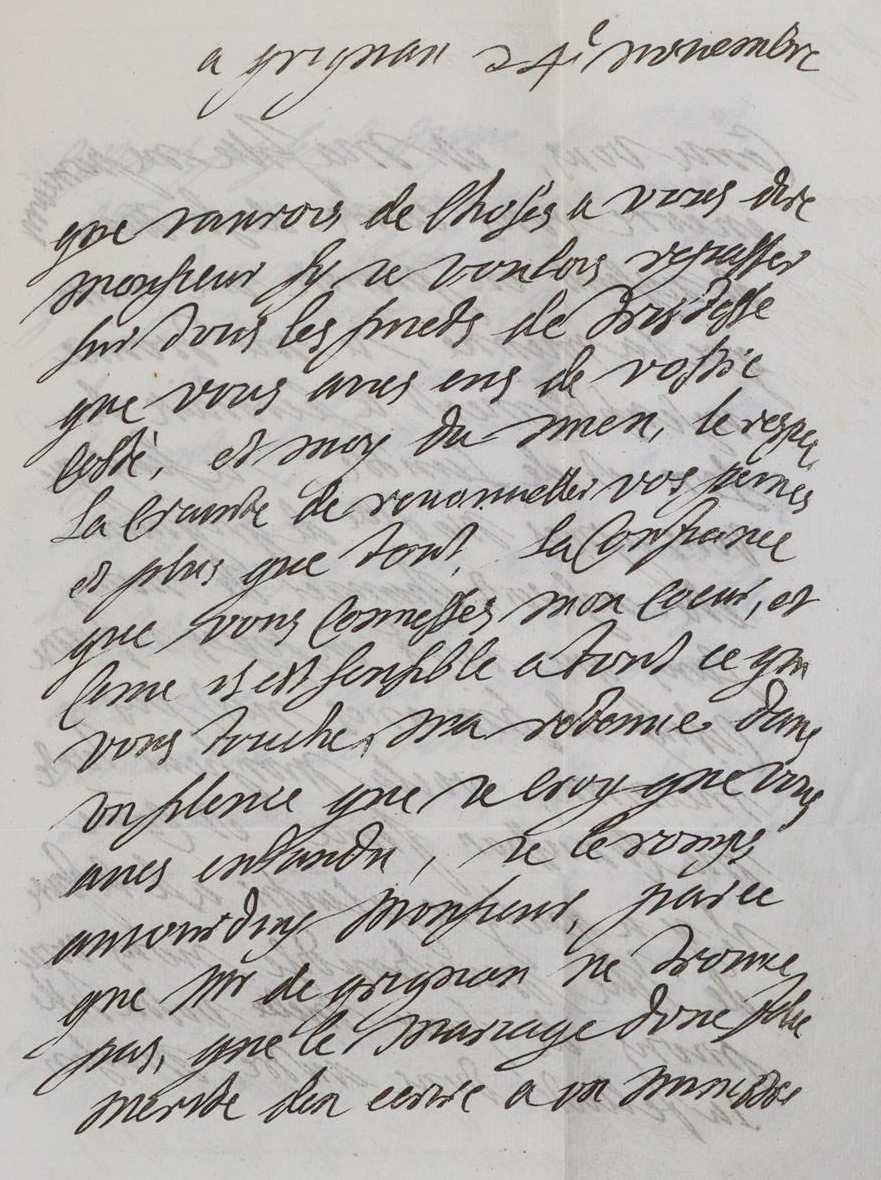 a grignan 24e novembre
que iaurois de choses a vous dire
monsieur sy ie voulois repasser
sur tous les suiets de tristesse
que vous aues eus de vostre
costé, et moy du mien, le respec
la crainte de renouueller vos peines
et plus que tout, la confiance
que vous connesses mon coeur, et
come il est sensible a tout ce qui
vous touche, ma retenue dans
vn silence que ie croy que vous
aues entandu, ie le romps
auiourduy monsieur, parce
que Mr de grignan ne trouue
pas, que le mariage dune fille
merite den ecrire a vn ministre